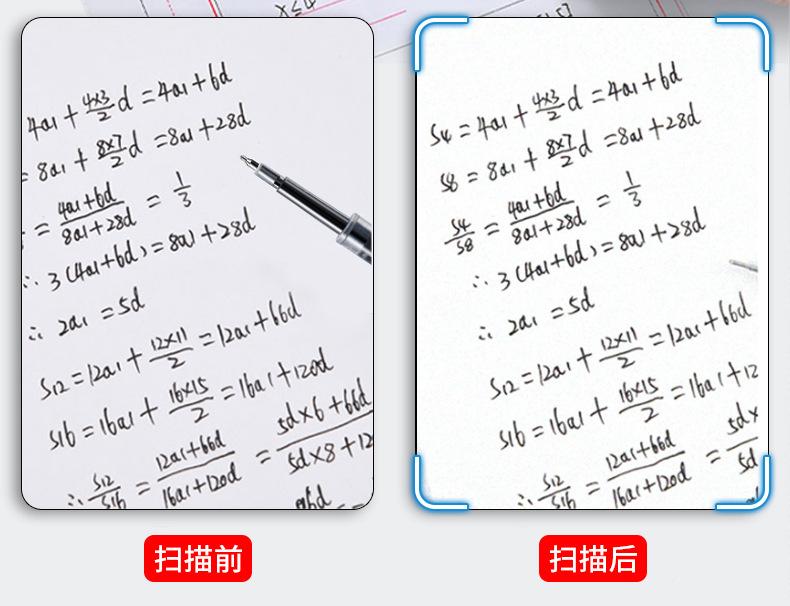 x≤4
4a1 + 4×3/2 d = 4a1 + 6d
= 8a1 + 8×7/2 d = 8a1 + 28d
= 4a1+6d/8a1+28d = 1/3
∴ 3(4a1+6d) = 8a1 + 28d
∴ 2a1 = 5d
S12 = 12a1 + 12×11/2 = 12a1 + 66d
S16 = 16a1 + 16×15/2 = 16a1 + 120d
∴ S12/S16 = 12a1+66d/16a1+120d = 5d×6+66d/5d×8+12
96d
扫描前
S4 = 4a1 + 4×3/2 d = 4a1 + 6d
S8 = 8a1 + 8×7/2 d = 8a1 + 28d
S4/S8 = 4a1+6d/8a1+28d = 1/3
∴ 3(4a1+6d) = 8a1 + 28d
∴ 2a1 = 5d
S12 = 12a1 + 12×11/2 = 12a1 + 66d
S16 = 16a1 + 16×15/2 = 16a1 + 12
∴ S12/S16 = 12a1+66d/16a1+120d = 5d×/5d
扫描后